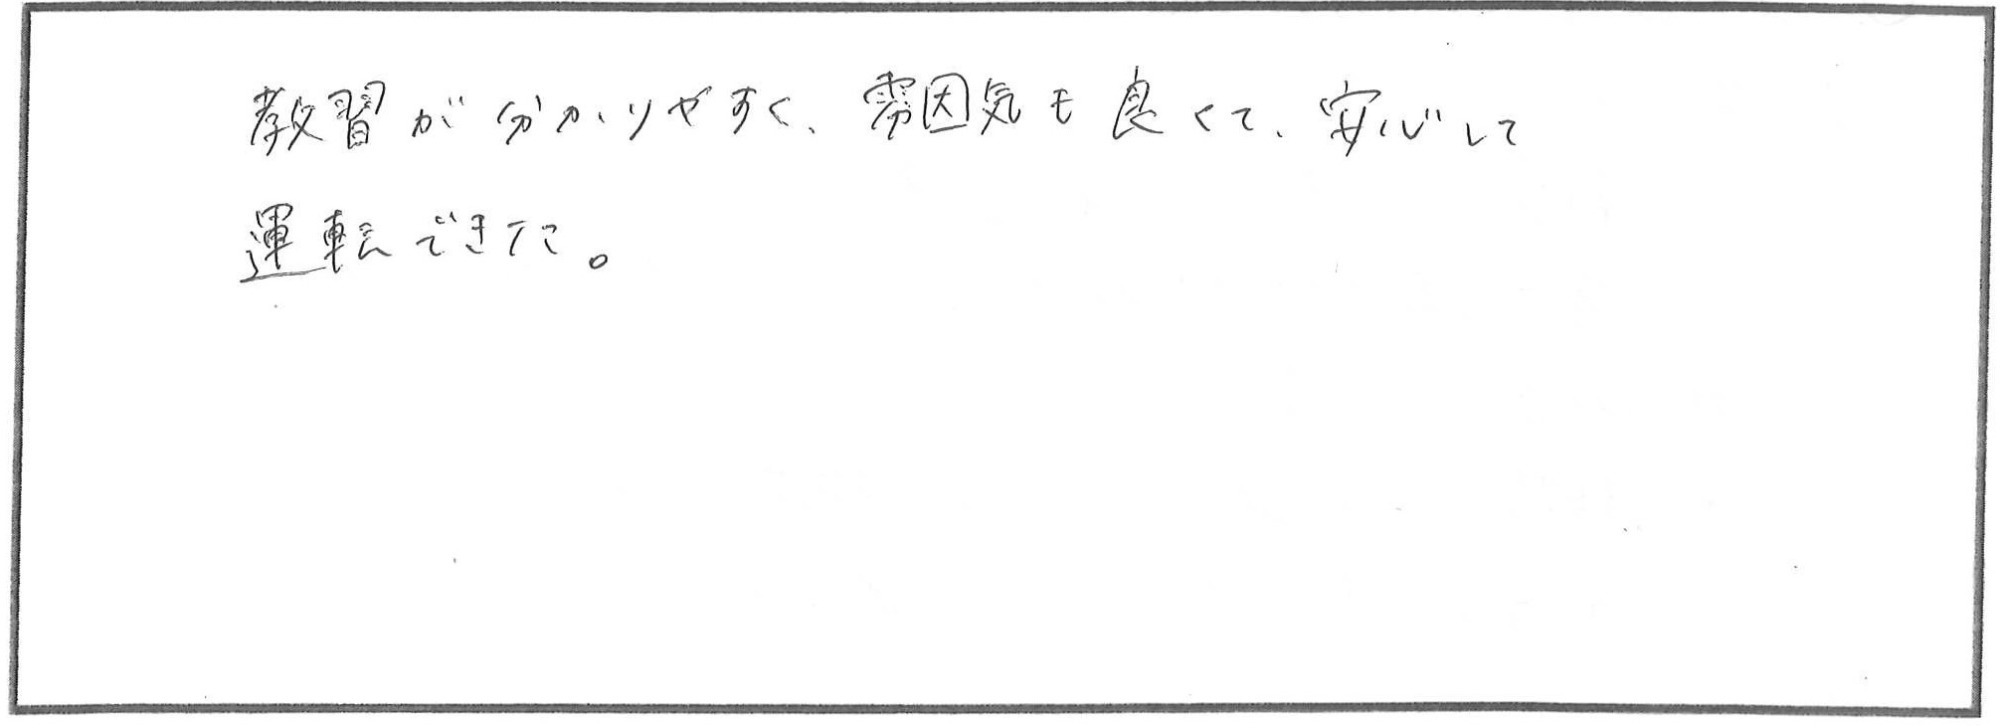 教習が分かりやすく、雰因気も良くて、安心して
運転できた。